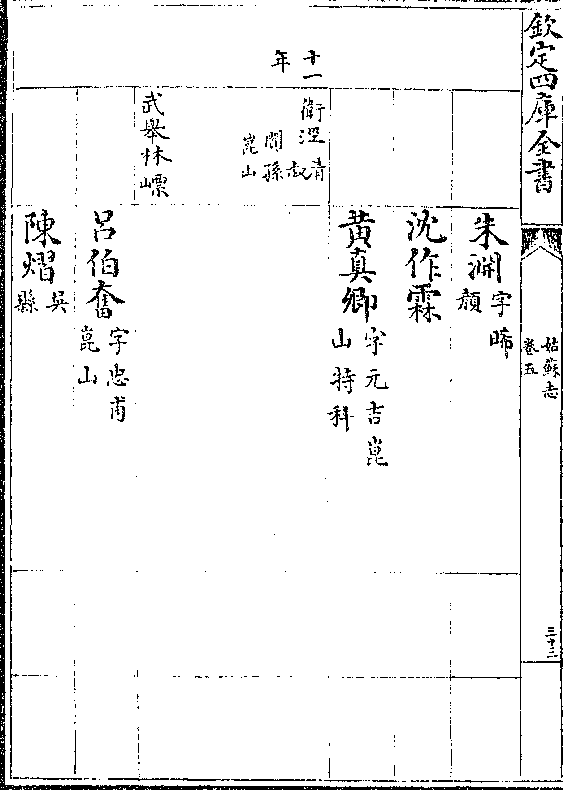 欽定四庫全書
姑蘇志
卷五
三十三
朱淵字晞
顔
沈作霖
黄真卿字元吉崑
山特科
十一
年
衛涇清
叔
孫
崑山
武舉林
吕伯奮字忠甫
崑山
陳熠吳
縣